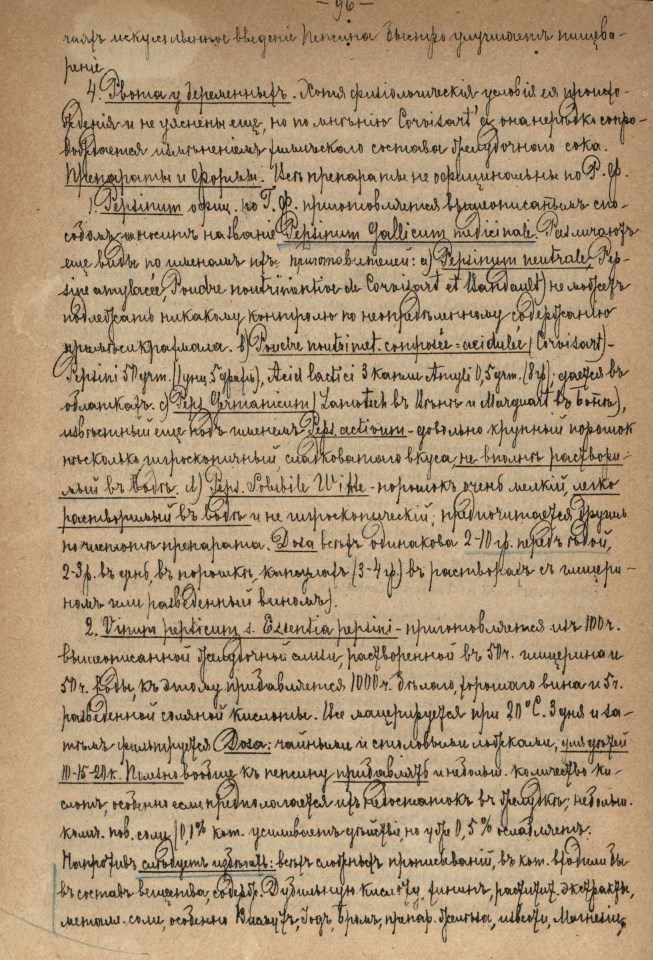 - 96 -
чаяхъ искусственное введеніе Пепсина быстро улучшаетъ пищева-
реніе
4. Рвота у беременныхъ. Хотя физіологическія условія ея происхо-
жденія и не уяснены еще, но по мнѣнію Corvisart'а, она нерѣдко сопро-
вождается измѣненіемъ химическаго состава желудочнаго сока.
Препараты и формы. Всѣ препараты не официнальны по Р. Ф.
1. Pepsinum офиц. по Г. Ф. приготовляется вышеописаннымъ спо-
собомъ и носитъ названіе Pepsinum Gallicum medicinale. Различаютъ
еще виды по именамъ ихъ приготовителей: a) Pepsinum neutrale, Pep-
sine amylacée, Poudre nutrimentive de Corvisart et Boudault) неможетъ
подлежать никакому контролю по неопредѣленному содержанію
примѣси крахмала. b) Poudre nutrimet. composée = acidulée (Corvisart)-
Pepsini 50 grm. (1 унц. 5 драхм), Acid lactici 3 капли Amyli 0,5 grm. (8 гр); дается въ
облаткахъ. c) Peps. Germanicum (Lamatsch въ Вѣнѣ и Marquart въ Боннѣ),
извѣстный еще подъ именемъ Peps. activum - довольно крупный порошокъ
нѣсколько гигроскопичный, сладковатаго вкуса, не вполнѣ раствори-
мый въ водѣ. d) Peps. Solubile Witte - порошокъ очень мелкій, легко
растворимый въ водѣ и не гигроскопическій; предпочитается другимъ
по чистотѣ препарата. Доза всѣхъ одинакова 2-10 гр. передъ ѣдой,
2-3 р. въ день, въ порошкѣ, капсуляхъ (3-4 гр.) въ растворахъ съ глицери-
номъ или разведеннымъ виномъ).
2. Vinum pepticum s. Essentia pepsini - приготовляется изъ 100 ч.
вышеописанной желудочной слизи, растворенной въ 50 ч. глицерина и
50 ч. воды, къ этому прибавляется 1000 ч. бѣлаго, хорошаго вина и 5 ч.
разведенной соляной кислоты. Все мацерируется при 20°C. 3 дня и за-
тѣмъ фильтруется Доза: чайными и столовыми ложками, для дѣтей
10-15-20 к. Полезно вообще къ пепсину прибавлять и небольш. количество ки-
слотъ, особенно если предполагается ихъ недостатокъ въ желудкѣ; небольш.
колич. пов. соли (0,1% кот. усиливаетъ дѣйствіе, но уже 0,5% ослабляетъ.
Напротивъ слѣдуетъ избѣгать: всѣхъ сложныхъ прописываній, въ кот. входили бы
въ составъ вещества, содерж. Дубильную кислоту, таннинъ, растит. экстракты,
металл. соли, особенно Висмутъ, Іодъ, Бромъ, препар. желѣза, извести, Магнезіи,